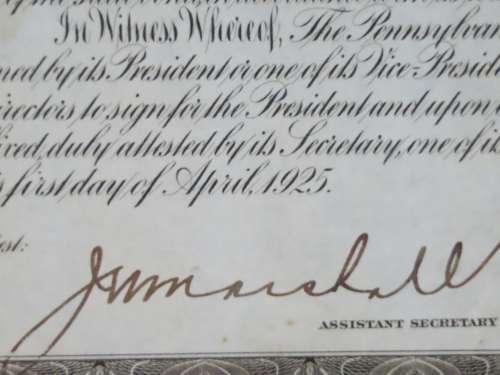 In Witness Whereof, The Pennsylvan
ned by its President or one of its Vice-Preside
irectors to sign for the President and upon
ixed, duly attested by its Secretary, one of it
s first day of April, 1925.
est:
J W Marshall
ASSISTANT SECRETARY